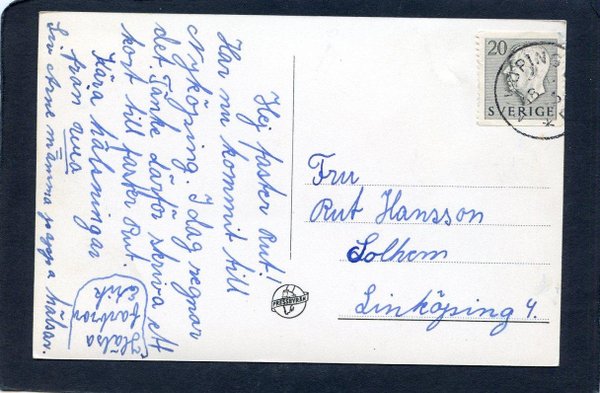 Hej faster Rut!
Har nu kommit till
Nyköping. I dag regnar
det. Tänkte därför skriva ett
kort till faster Rut.
Kära hälsningar
från
Siv Arne mamma pappa hälsar.
Hälsa
farbror
Erik
PRESSBYRÅN
20
SVERIGE
KÖPING
Fru
Rut Hansson
Solhem
Linköping 4.